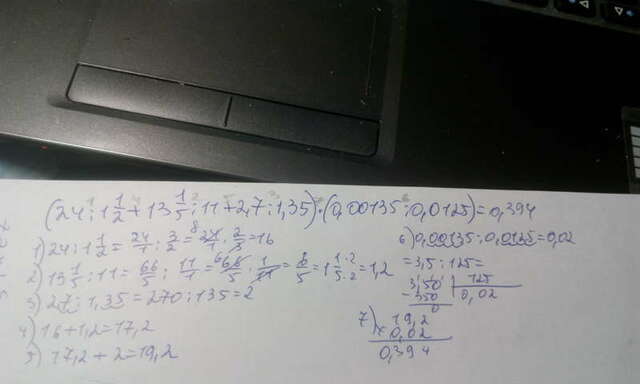 (24 : 1 1/2 + 13 1/5 : 11 + 2,7 : 1,35) · (0,00135 : 0,0125) = 0,394
1) 24 : 1 1/2 = 24/1 : 3/2 = 24/1 · 2/3 = 16
2) 13 1/5 : 11 = 66/5 : 11/1 = 66/5 · 1/11 = 6/5 = 1 1·2/5·2 = 1,2
3) 2,7 : 1,35 = 270 : 135 = 2
4) 16 + 1,2 = 17,2
5) 17,2 + 2 = 19,2
6) 0,00135 : 0,0125 = 0,02
= 3,5 : 125 =
3,50 | 125
- 350 | 0,02
0
7) 19,2
× 0,02
0,394